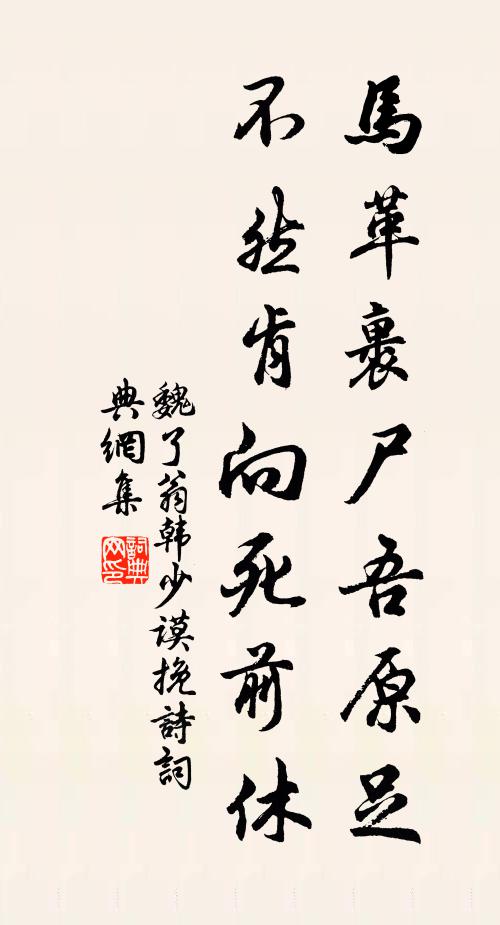 馬革裹尸吾原足
不然肯向死前休
魏了翁韩少謨挽詩詞
典網集
詞典
网印